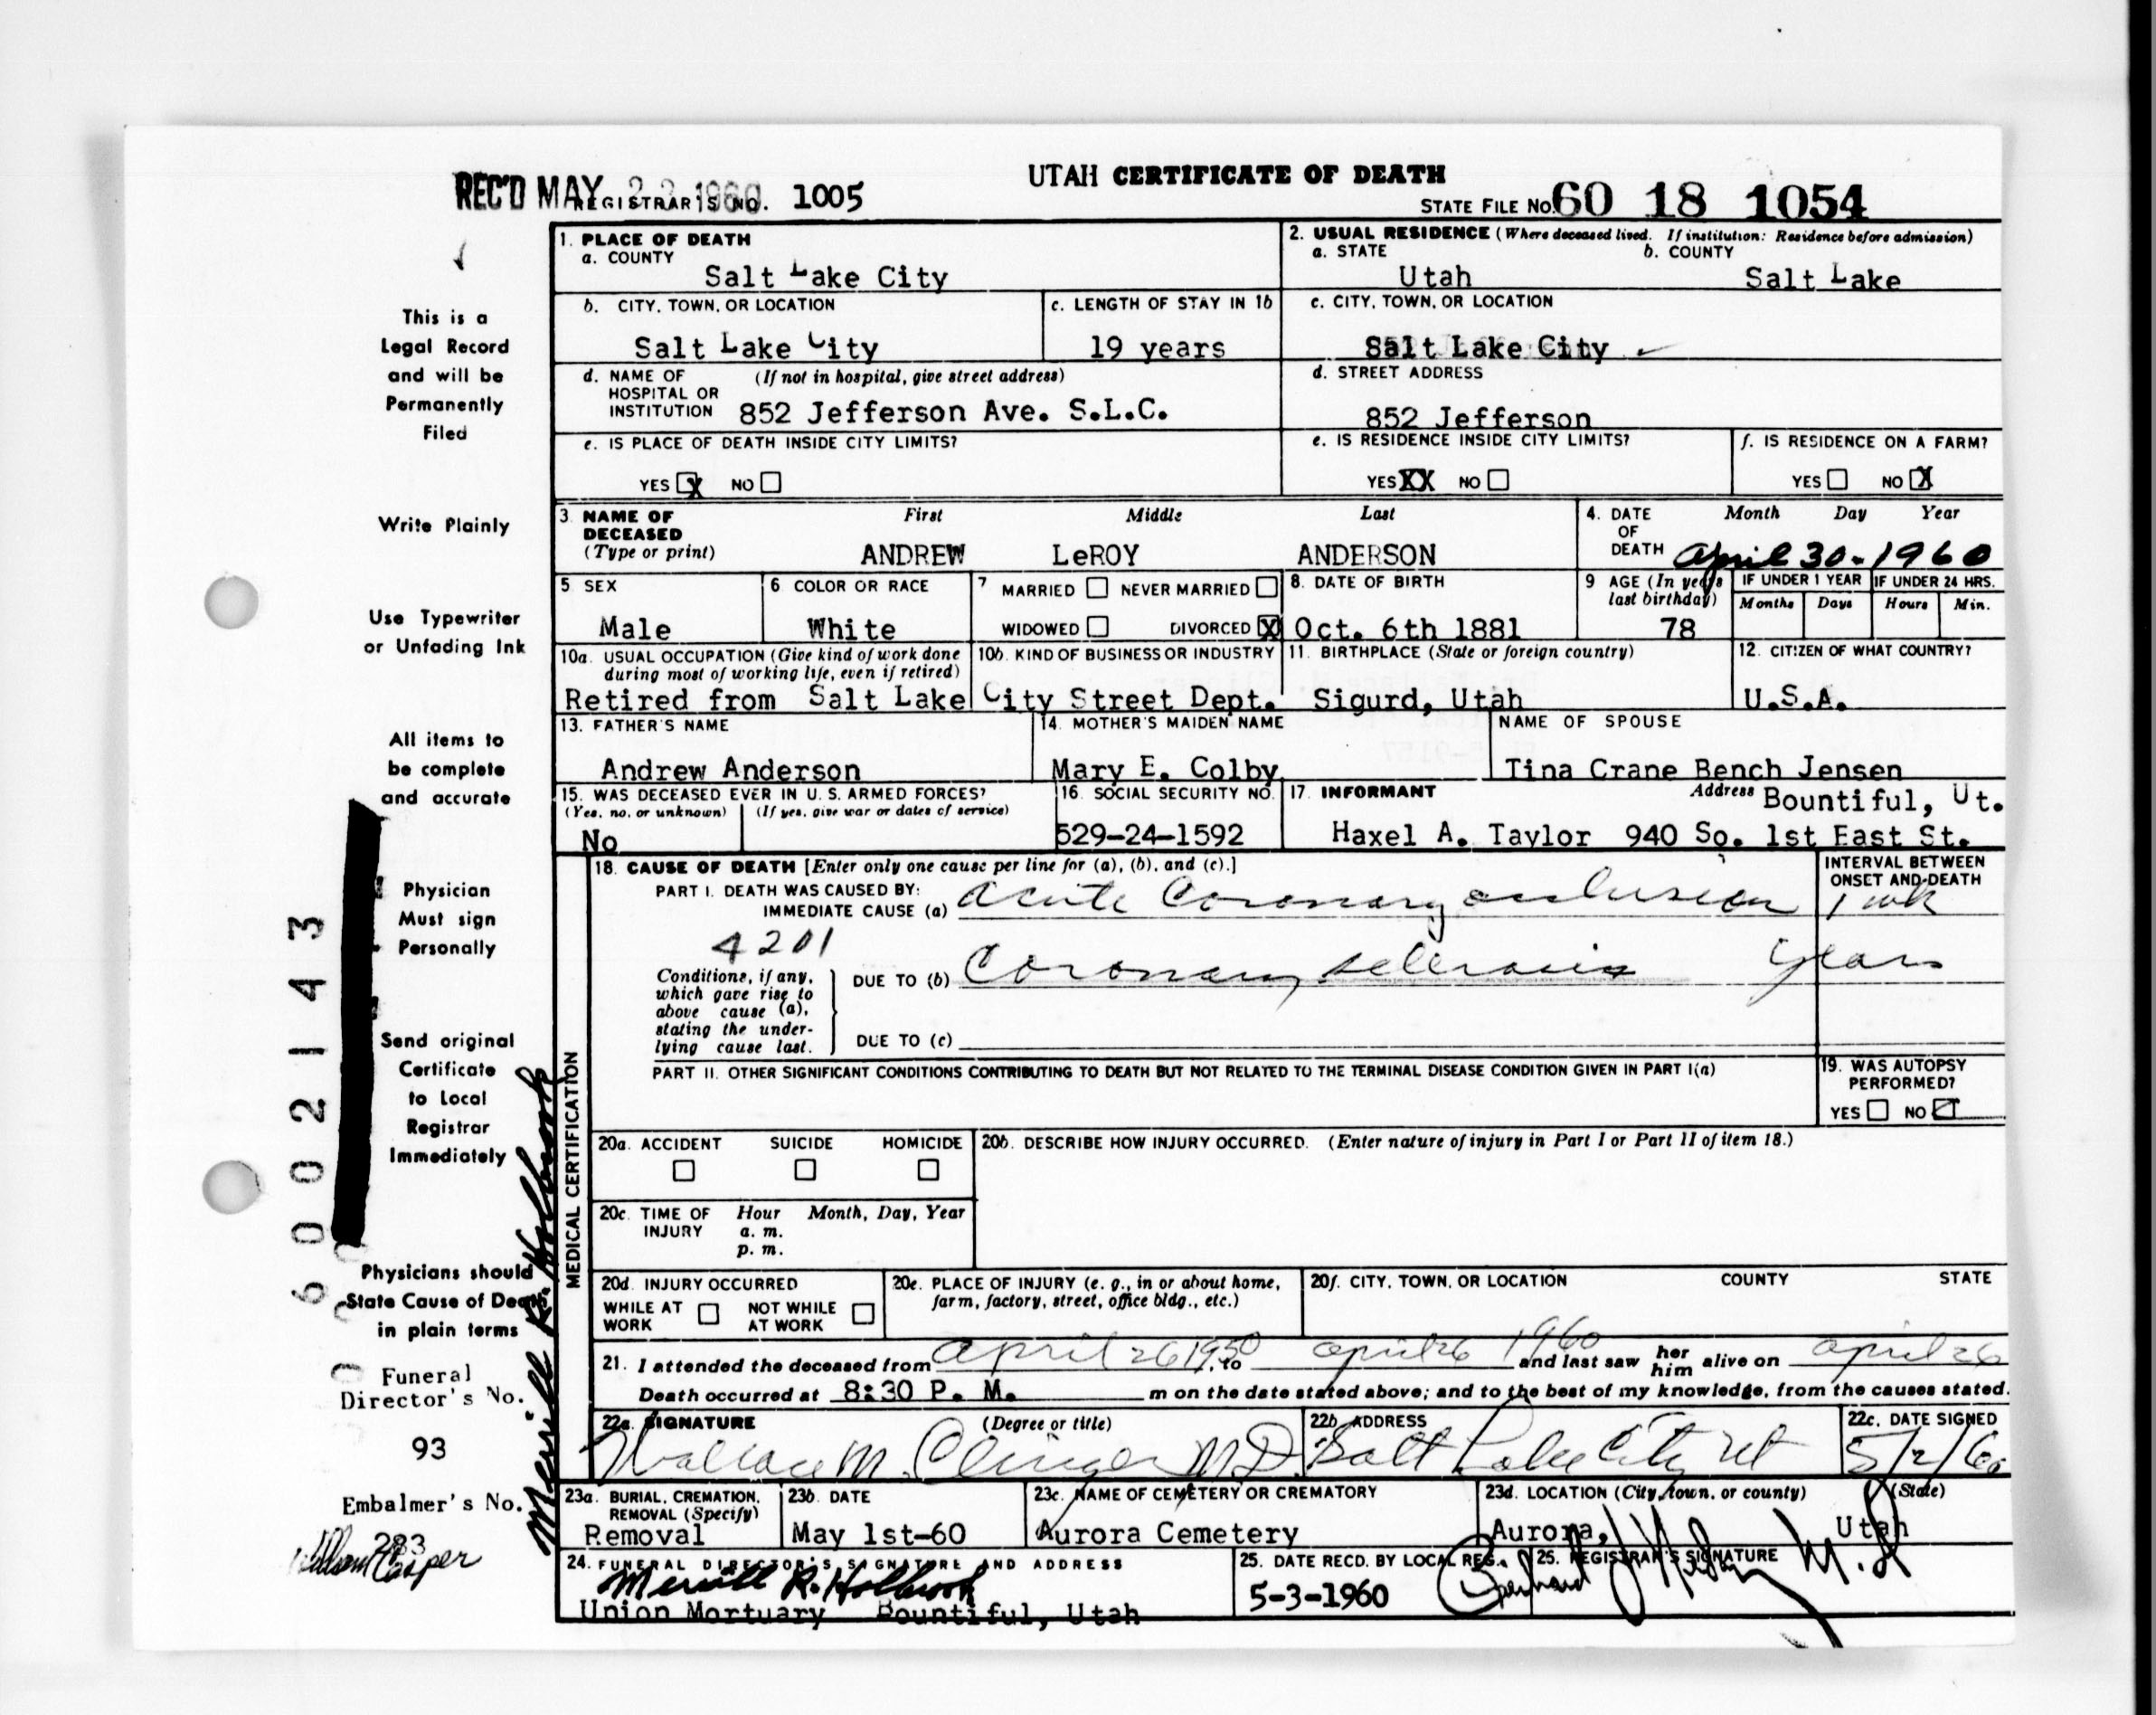 UTAH CERTIFICATE OF DEATH
REC'D MAY 22 1960 REGISTRAR'S NO. 1005
STATE FILE NO. 60 18 1054
This is a
Legal Record
and will be
Permanently
Filed
Write Plainly
Use Typewriter
or Unfading Ink
All items to
be complete
and accurate
Physician
Must sign
Personally
Send original
Certificate
to Local
Registrar
Immediately
Physicians should
State Cause of Death
in plain terms
Funeral
Director's No.
93
Embalmer's No.
283
6002143
Merrill R. Holbrook
1. PLACE OF DEATH
a. COUNTY
Salt Lake City
2. USUAL RESIDENCE (Where deceased lived. If institution: Residence before admission)
a. STATE b. COUNTY
Utah Salt Lake
b. CITY, TOWN, OR LOCATION
Salt Lake City
c. LENGTH OF STAY IN 1b
19 years
c. CITY, TOWN, OR LOCATION
Salt Lake City
d. NAME OF (If not in hospital, give street address)
HOSPITAL OR
INSTITUTION 852 Jefferson Ave. S.L.C.
d. STREET ADDRESS
852 Jefferson
e. IS PLACE OF DEATH INSIDE CITY LIMITS?
YES X NO
e. IS RESIDENCE INSIDE CITY LIMITS?
YES XX NO
f. IS RESIDENCE ON A FARM?
YES NO X
3. NAME OF First Middle Last
DECEASED
(Type or print) ANDREW LeROY ANDERSON
4. DATE Month Day Year
OF
DEATH April 30-1960
5 SEX
Male
6 COLOR OR RACE
White
7 MARRIED NEVER MARRIED
WIDOWED DIVORCED X
8. DATE OF BIRTH
Oct. 6th 1881
9 AGE (In years
last birthday)
78
IF UNDER 1 YEAR IF UNDER 24 HRS.
Months Days Hours Min.
10a. USUAL OCCUPATION (Give kind of work done
during most of working life, even if retired)
10b. KIND OF BUSINESS OR INDUSTRY
Retired from Salt Lake City Street Dept.
11. BIRTHPLACE (State or foreign country)
Sigurd, Utah
12. CITIZEN OF WHAT COUNTRY?
U.S.A.
13. FATHER'S NAME
Andrew Anderson
14. MOTHER'S MAIDEN NAME
Mary E. Colby
NAME OF SPOUSE
Tina Crane Bench Jensen
15. WAS DECEASED EVER IN U.S. ARMED FORCES?
(Yes, no, or unknown) (If yes, give war or dates of service)
No
16. SOCIAL SECURITY NO.
529-24-1592
17. INFORMANT Address Bountiful, Ut.
Haxel A. Taylor 940 So. 1st East St.
MEDICAL CERTIFICATION
18. CAUSE OF DEATH [Enter only one cause per line for (a), (b), and (c).]
INTERVAL BETWEEN
ONSET AND DEATH
PART I. DEATH WAS CAUSED BY:
IMMEDIATE CAUSE (a) Acute Coronary occlusion 1 wk
4201
Conditions, if any,
which gave rise to
above cause (a),
stating the under-
lying cause last.
DUE TO (b) Coronary sclerosis years
DUE TO (c)
PART II. OTHER SIGNIFICANT CONDITIONS CONTRIBUTING TO DEATH BUT NOT RELATED TO THE TERMINAL DISEASE CONDITION GIVEN IN PART I(a)
19. WAS AUTOPSY
PERFORMED?
YES NO
20a. ACCIDENT SUICIDE HOMICIDE
20b. DESCRIBE HOW INJURY OCCURRED. (Enter nature of injury in Part I or Part II of item 18.)
20c. TIME OF Hour Month, Day, Year
INJURY a. m.
p. m.
20d. INJURY OCCURRED
WHILE AT NOT WHILE
WORK AT WORK
20e. PLACE OF INJURY (e. g., in or about home,
farm, factory, street, office bldg., etc.)
20f. CITY, TOWN, OR LOCATION COUNTY STATE
21. I attended the deceased from April 26 1950, to April 26 1960 and last saw her him alive on April 26
Death occurred at 8:30 P. M. m on the date stated above; and to the best of my knowledge, from the causes stated.
22a. SIGNATURE (Degree or title)
Wallace M. Clinger MD.
22b. ADDRESS
Salt Lake City Ut
22c. DATE SIGNED
5/2/60
23a. BURIAL, CREMATION,
REMOVAL (Specify)
Removal
23b. DATE
May 1st-60
23c. NAME OF CEMETERY OR CREMATORY
Aurora Cemetery
23d. LOCATION (City, town, or county) (State)
Aurora, Utah
24. FUNERAL DIRECTOR'S SIGNATURE AND ADDRESS
Merrill R. Holbrook
Union Mortuary Bountiful, Utah
25. DATE RECD. BY LOCAL REG.
5-3-1960
25. REGISTRAR'S SIGNATURE